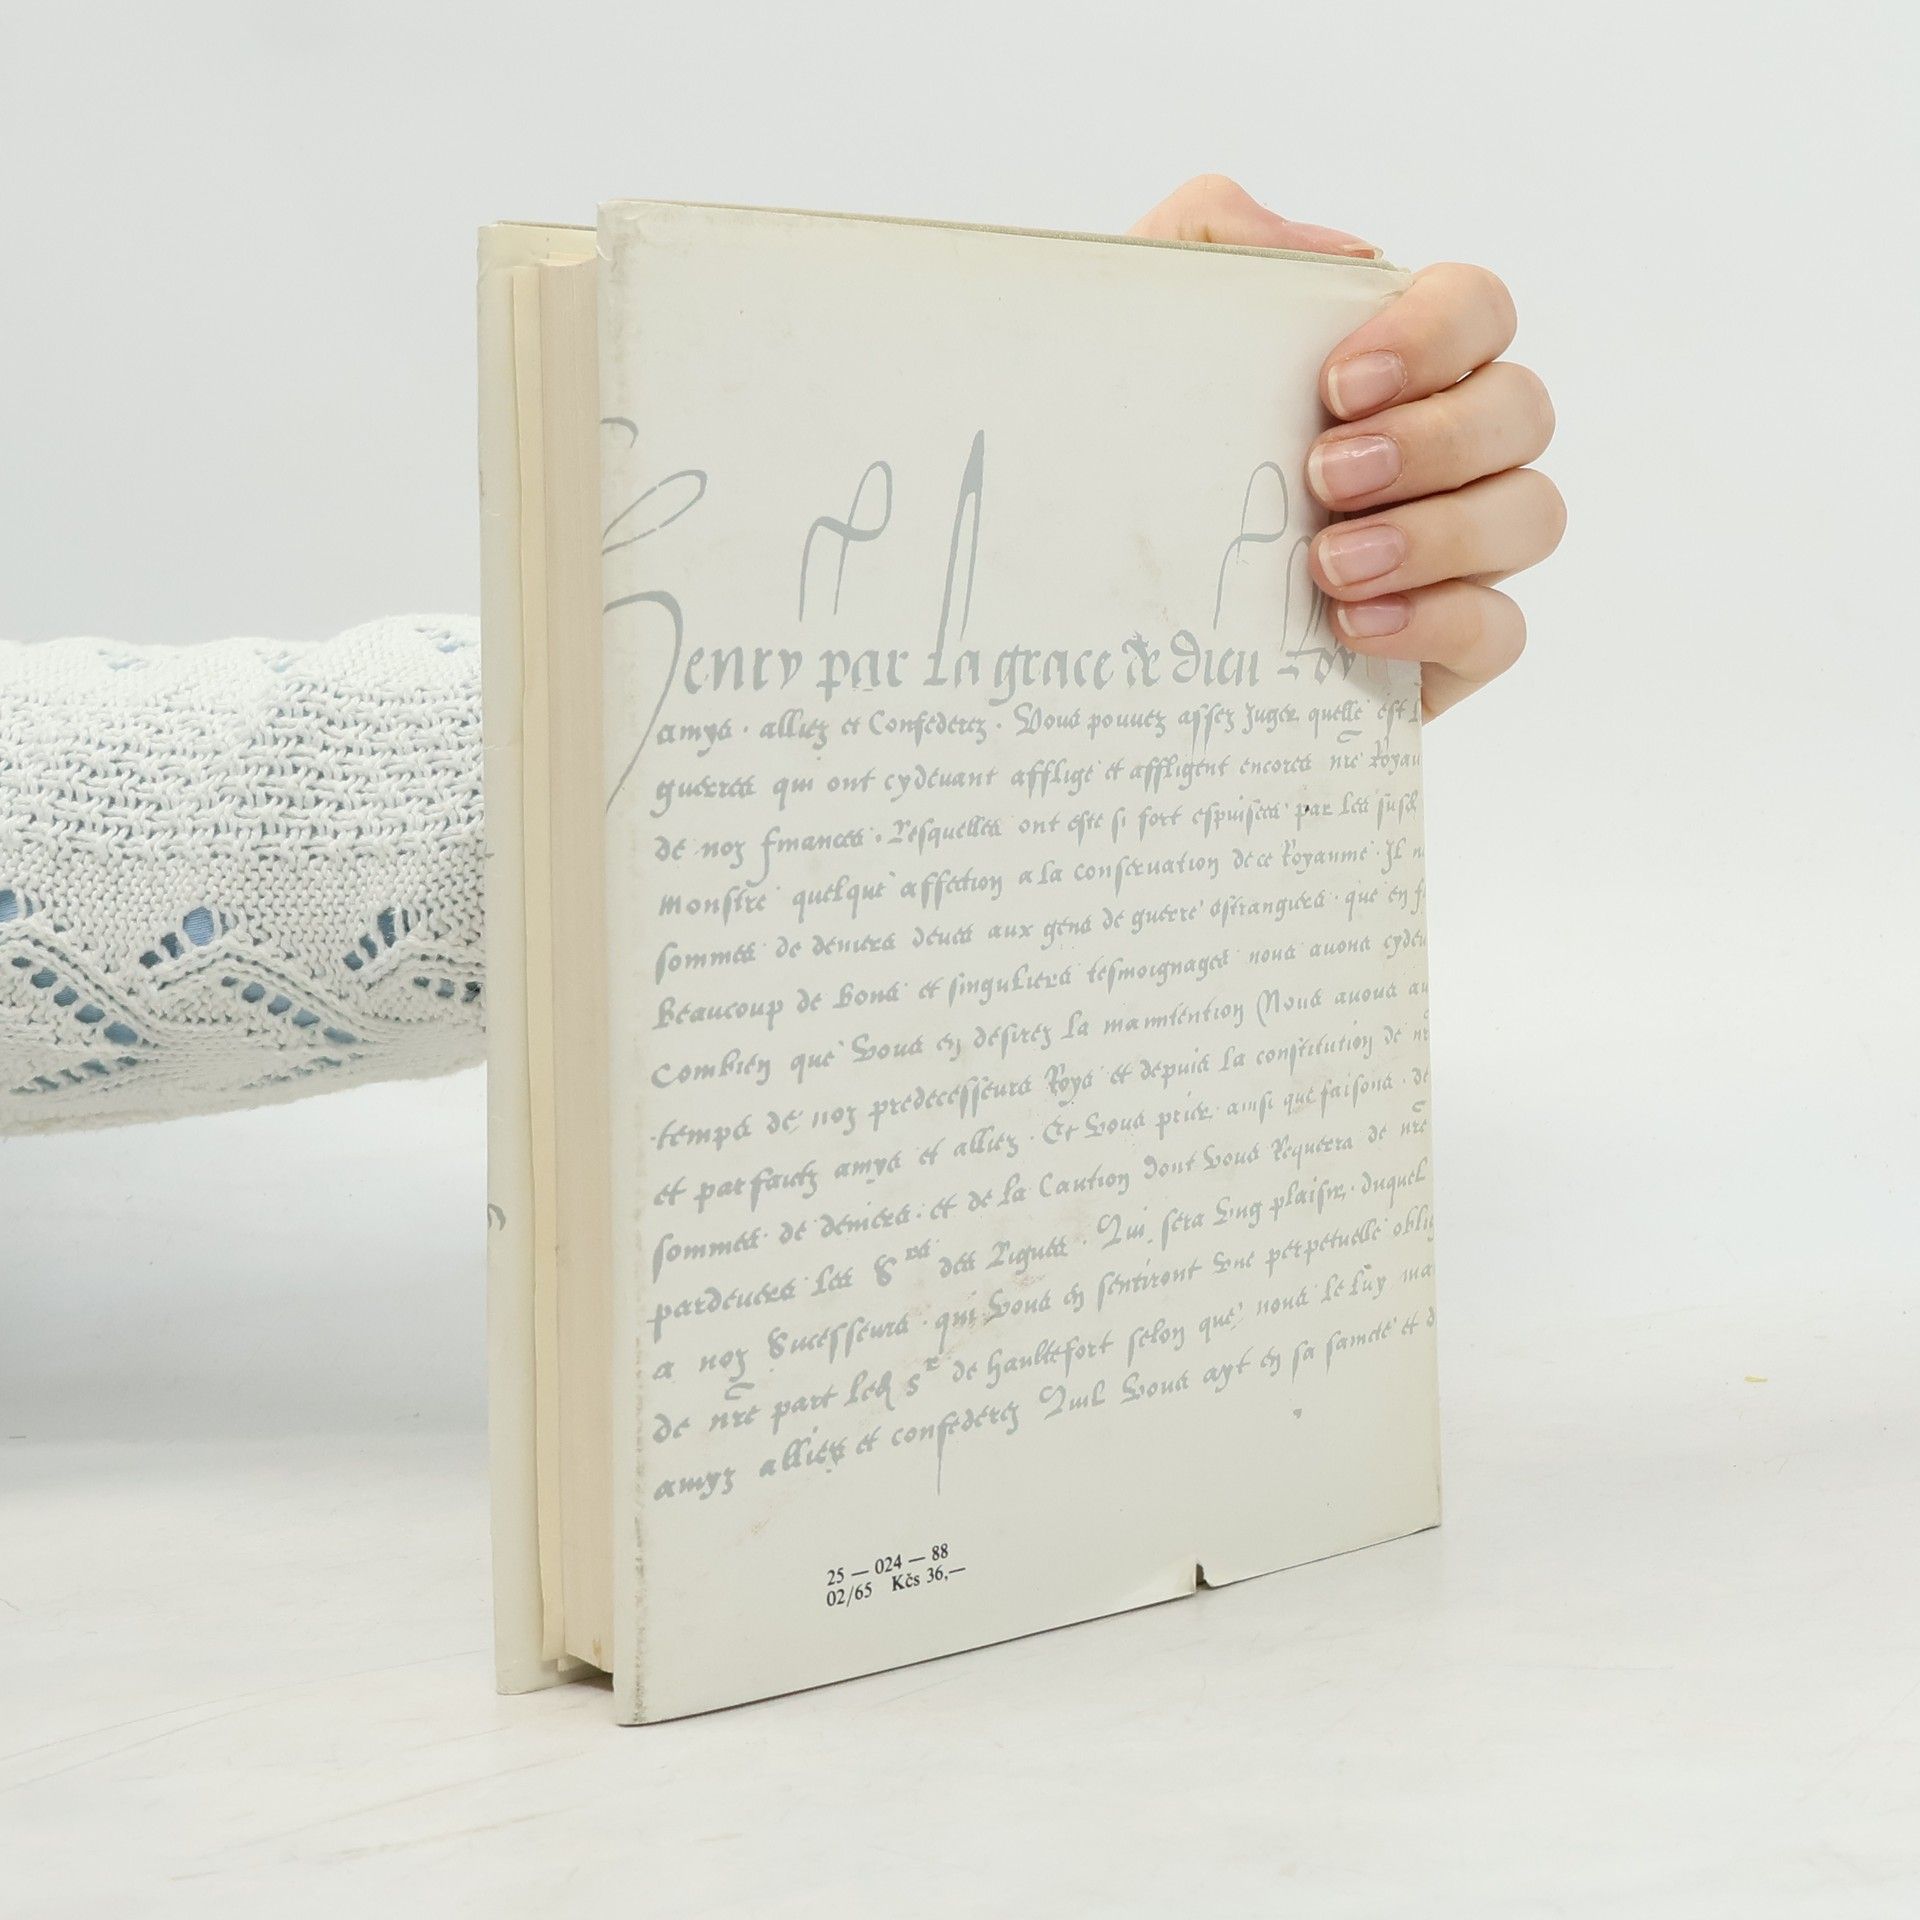 Henry par la grace de dieu Roy
amys . alliez et Confederez . Vous pouuez assez Juger quelle est
guerres qui ont cydeuant affligé et affligent encores nre Royau
de noz finances . Lesquelles ont esté si fort espuisees par les
monstre quelque affection a la conseruation de ce Royaume . Il
sommes de deniers deues aux gens de guerre estrangiers . que en
Beaucoup de bons et singuliers tesmoignages nous auons cydeu
Combien que vous en desirez la manutention Nous auons
temps de noz predecesseurs Roys et depuis la constitution de
et parfaictz amys et alliez . Et vous prier ainsi que faisons . de
sommes de deniers . et de la Caution dont vous Requerra de nre
pardeuers les Srs des Ligues . Qui sera vng plaisir . duquel
a noz Sucesseurs . qui vous en sentiront vne perpetuelle oblig
de nre part led Sr de haultefort selon que nous le luy
amyz alliez et confederez Quil vous ayt en sa saincte et d
25 — 024 — 88
02/65 Kčs 36,—